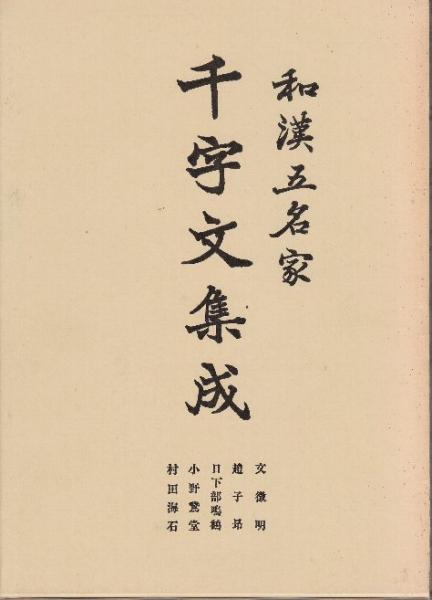 和漢五名家
千字文集成
文徴明
趙子昂
日下部鳴鶴
小野鵞堂
村田海石